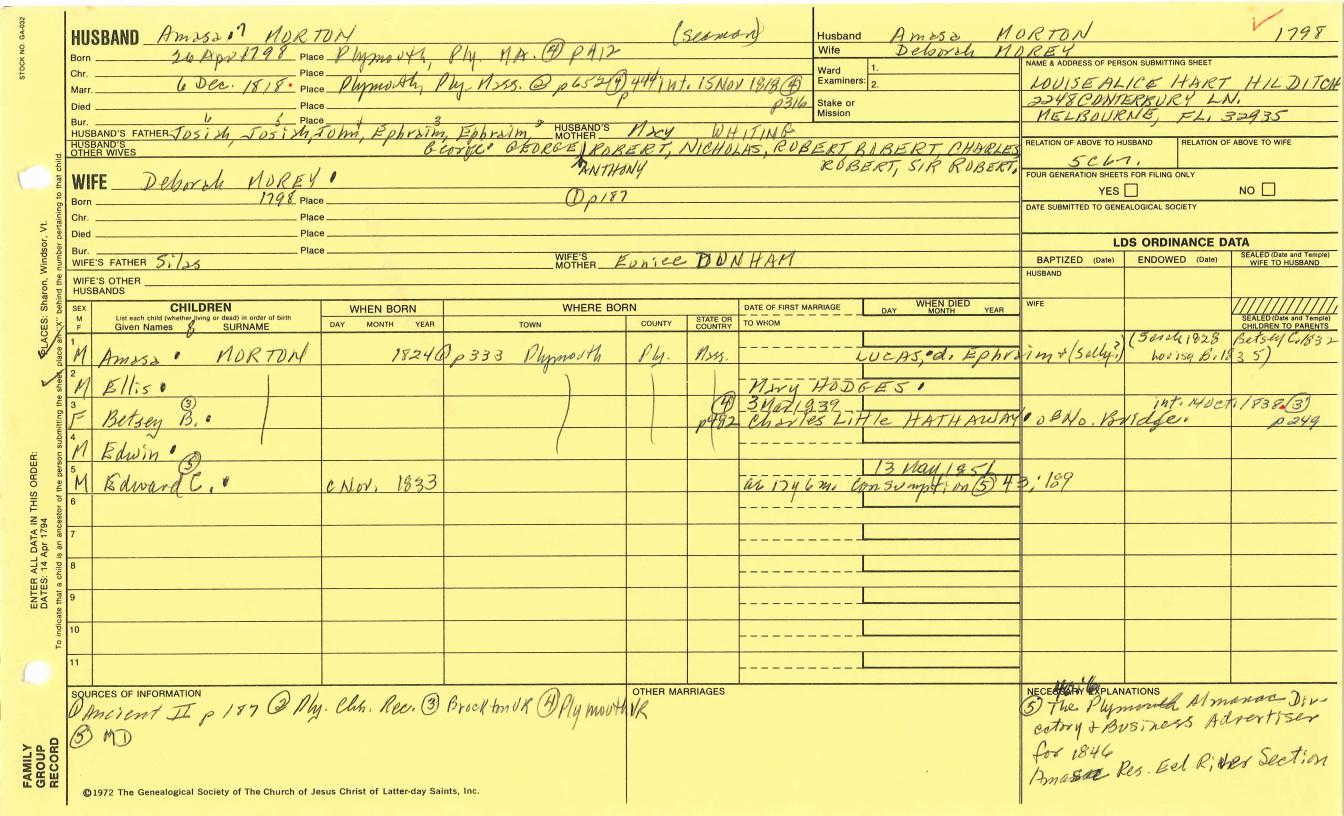 STOCK NO. GA-032
HUSBAND Amasa 7 MORTON (Seaman)
Born 26 Apr 1798 Place Plymouth, Ply. MA. ④ p A12
Chr. Place
Marr. 6 Dec. 1818. Place Plymouth, Ply. Mass. ② p652 ④ p 444 int. 15 Nov 1818 ④ p316
Died Place
Bur. Place
HUSBAND'S FATHER Josiah, 6 Josiah, 5 John, 4 Ephraim, 3 Ephraim, 2 HUSBAND'S MOTHER Mary WHITING
HUSBAND'S OTHER WIVES George GEORGE, ROBERT, NICHOLAS, ROBERT ROBERT CHARLES
ANTHONY ROBERT, SIR ROBERT.
WIFE Deborah MOREY
Born 1798 Place ① p187
Chr. Place
Died Place
Bur. Place
WIFE'S FATHER Silas WIFE'S MOTHER Eunice DUNHAM
WIFE'S OTHER HUSBANDS
Husband Amasa MORTON 1798
Wife Deborah MOREY
Ward Examiners: 1.
2.
Stake or Mission
NAME & ADDRESS OF PERSON SUBMITTING SHEET
LOUISE ALICE HART HILDITCH
2248 CONTERBURY LN.
MELBOURNE, FL. 32935
RELATION OF ABOVE TO HUSBAND RELATION OF ABOVE TO WIFE
5C6r.
FOUR GENERATION SHEETS FOR FILING ONLY
YES NO
DATE SUBMITTED TO GENEALOGICAL SOCIETY
LDS ORDINANCE DATA
BAPTIZED (Date) ENDOWED (Date) SEALED (Date and Temple) WIFE TO HUSBAND
HUSBAND
WIFE
SEALED (Date and Temple) CHILDREN TO PARENTS
SEX M F CHILDREN WHEN BORN WHERE BORN DATE OF FIRST MARRIAGE WHEN DIED
List each child (whether living or dead) in order of birth DAY MONTH YEAR
Given Names & SURNAME DAY MONTH YEAR TOWN COUNTY STATE OR COUNTRY TO WHOM
1 M Amasa MORTON 1824 ① p333 Plymouth Ply. Mass. LUCAS, d. Ephraim + (Sally?) (Sarah 1828 Betsey C. 1832
Louisa B. 1835)
2 M Ellis Mary HODGES
3 F Betsey B. ③ ④ p492 3 Mar 1839 int. 14 Oct. 1838. ③
Charles Little HATHAWAY of No. Bridge. p249
4 M Edwin
5 M Edward C. ⑤ c Nov. 1833 13 May 1851
ae 17y 6m. Consumption ⑤ 43:189
6
7
8
9
10
11
SOURCES OF INFORMATION
① Ancient II p 187 ② Ply. Chh. Rec. ③ Brockton VR ④ Plymouth VR
⑤ MD
OTHER MARRIAGES
NECESSARY EXPLANATIONS
⑤ The Plymouth Almanac Directory & Business Advertiser
for 1846
Amasa Res. Eel River Section
©1972 The Genealogical Society of The Church of Jesus Christ of Latter-day Saints, Inc.
FAMILY GROUP RECORD
ENTER ALL DATA IN THIS ORDER:
DATES: 14 Apr 1794
PLACES: Sharon, Windsor, Vt.
To indicate that a child is an ancestor of the person submitting the sheet, place an "X" behind the number pertaining to that child.